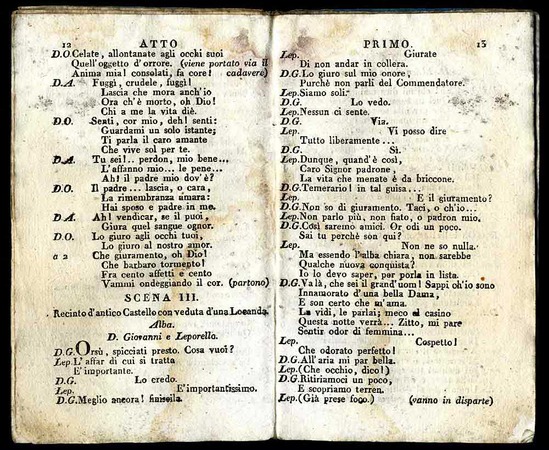 12 ATTO
D.O. Celate, allontanate agli occhi suoi
Quell'oggetto d'orrore. (viene portato via il
Anima mia! consolati, fa core! cadavere)
D.A. Fuggi, crudele, fuggi!
Lascia che mora anch'io
Ora ch'è morto, oh Dio!
Chi a me la vita diè.
D.O. Senti, cor mio, deh! senti:
Guardami un solo istante;
Ti parla il caro amante
Che vive sol per te.
D.A. Tu sei!.. perdon, mio bene...
L'affanno mio... le pene...
Ah! il padre mio dov'è?
D.O. Il padre... lascia, o cara,
La rimembranza amara:
Hai sposo e padre in me.
D.A. Ah! vendicar, se il puoi,
Giura quel sangue ognor.
D.O. Lo giuro agli occhi tuoi,
Lo giuro al nostro amor.
a 2 Che giuramento, oh Dio!
Che barbaro tormento!
Fra cento affetti e cento
Vammi ondeggiando il cor. (partono)
SCENA III.
Recinto d'antico Castello con veduta d'una Locanda.
Alba.
D. Giovanni e Leporello.
D.G. Orsù, spicciati presto. Cosa vuoi?
Lep. L'affar di cui si tratta
E' importante.
D.G. Lo credo.
Lep. E' importantissimo.
D.G. Meglio ancora! finiscila.
PRIMO. 13
Lep. Giurate
Di non andar in collera.
D.G. Lo giuro sul mio onore,
Purchè non parli del Commendatore.
Lep. Siamo soli.
D.G. Lo vedo.
Lep. Nessun ci sente.
D.G. Via.
Lep. Vi posso dire
Tutto liberamente...
D.G. Sì.
Lep. Dunque, quand'è così,
Caro Signor padrone,
La vita che menate è da briccone.
D.G. Temerario! in tal guisa...
Lep. E il giuramento?
D.G. Non so di giuramento. Taci, o ch'io...
Lep. Non parlo più, non fiato, o padron mio.
D.G. Così saremo amici. Or odi un poco.
Sai tu perchè son qui?
Lep. Non ne so nulla.
Ma essendo l'alba chiara, non sarebbe
Qualche nuova conquista?
Io lo devo saper, per porla in lista.
D.G. Va là, che sei il grand'uom! Sappi ch'io sono
Innamorato d'una bella Dama,
E son certo che m'ama.
La vidi, le parlai; meco al casino
Questa notte verrà... Zitto, mi pare
Sentir odor di femmina...
Lep. Cospetto!
Che odorato perfetto!
D.G. All'aria mi par bella.
Lep. (Che occhio, dico!)
D.G. Ritiriamoci un poco,
E scopriamo terren.
Lep. (Già prese foco.) (vanno in disparte)